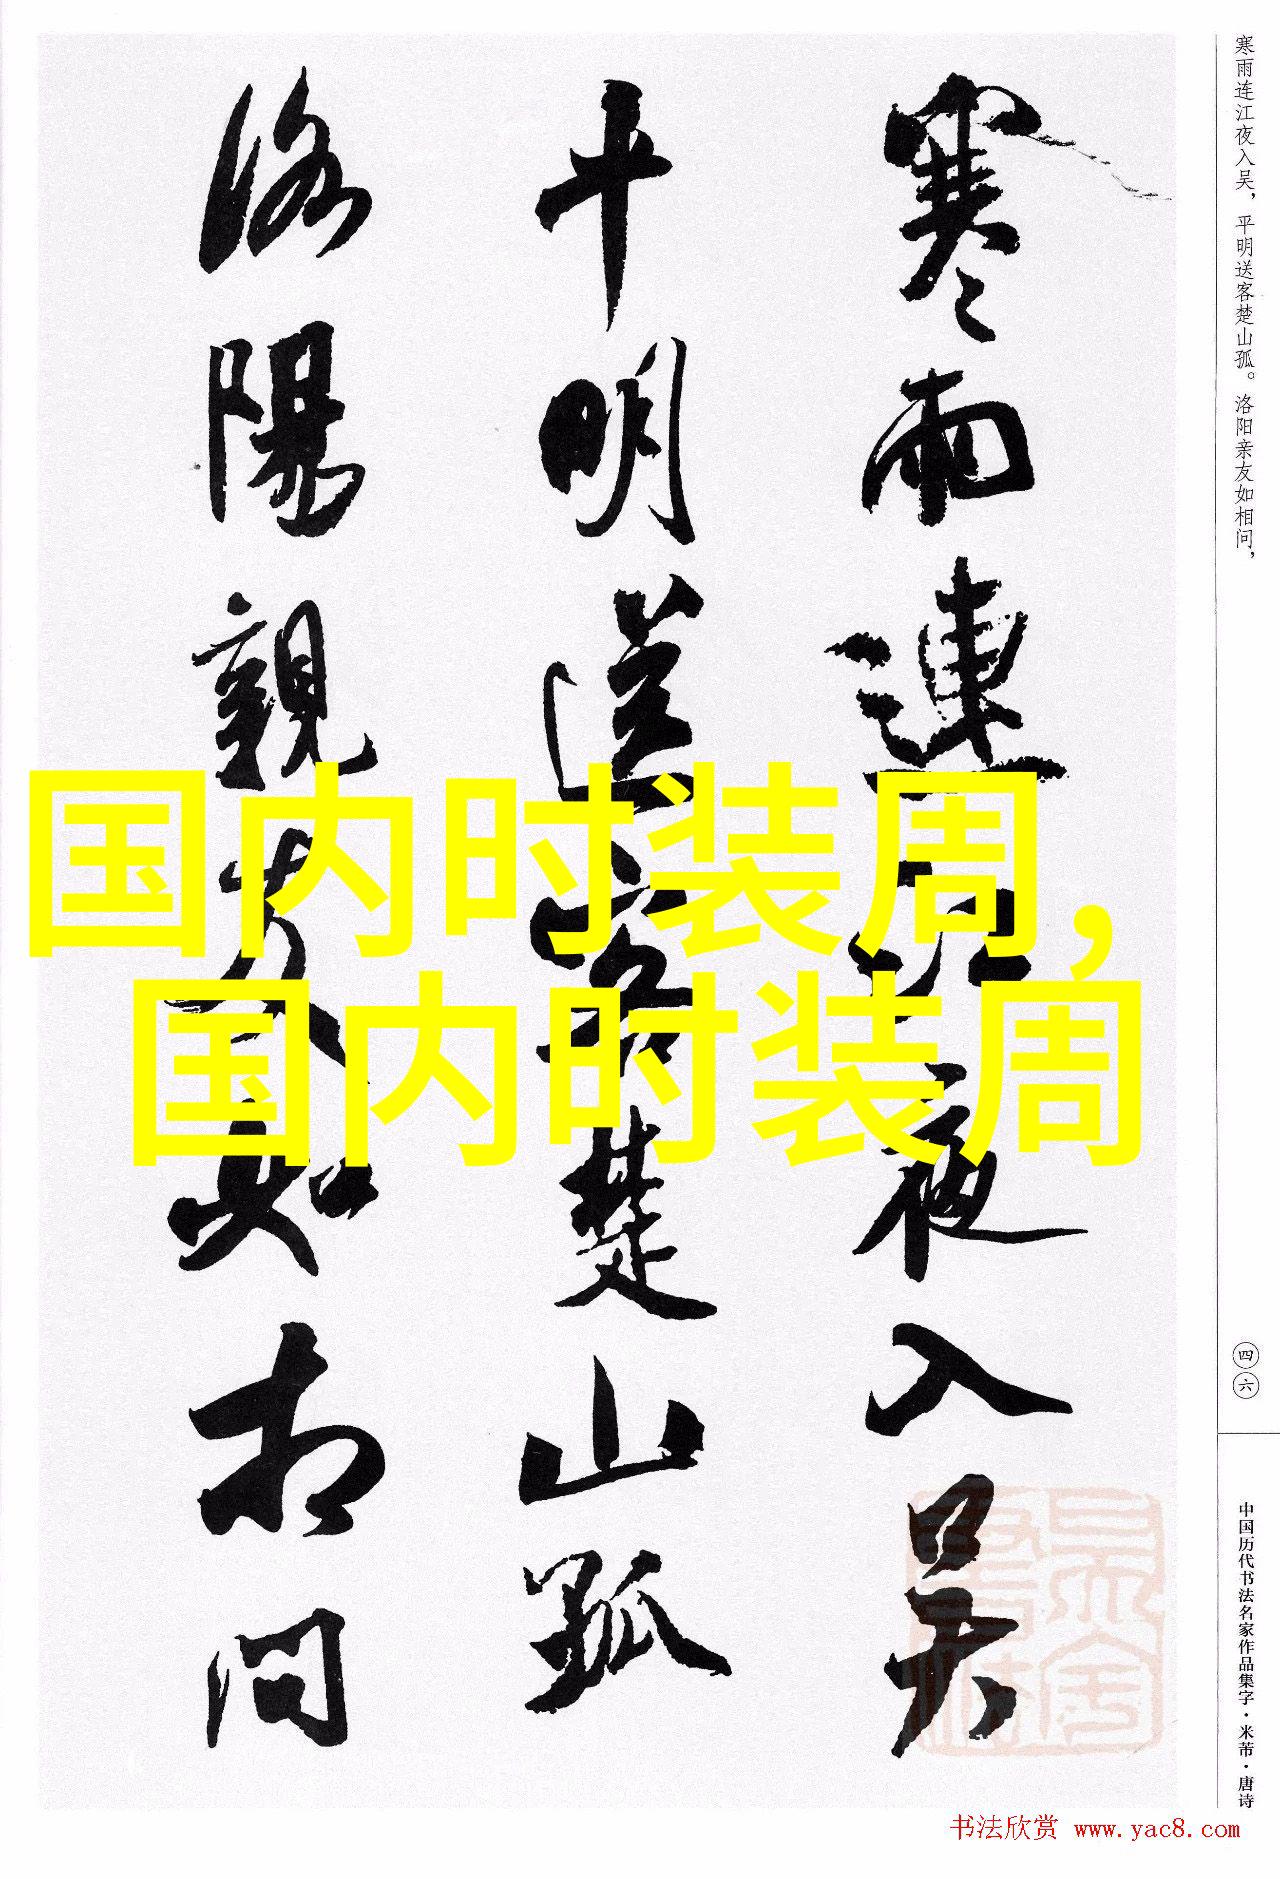 寒雨連江夜入吴
平明送客楚山孤
洛陽親友如相问
国内时装周，
国内时装周
寒雨连江夜入吴，平明送客楚山孤。洛阳亲友如相问，
四六
中国历代书法名家作品集字·米芾·唐诗
书法欣赏 www.yac8.com